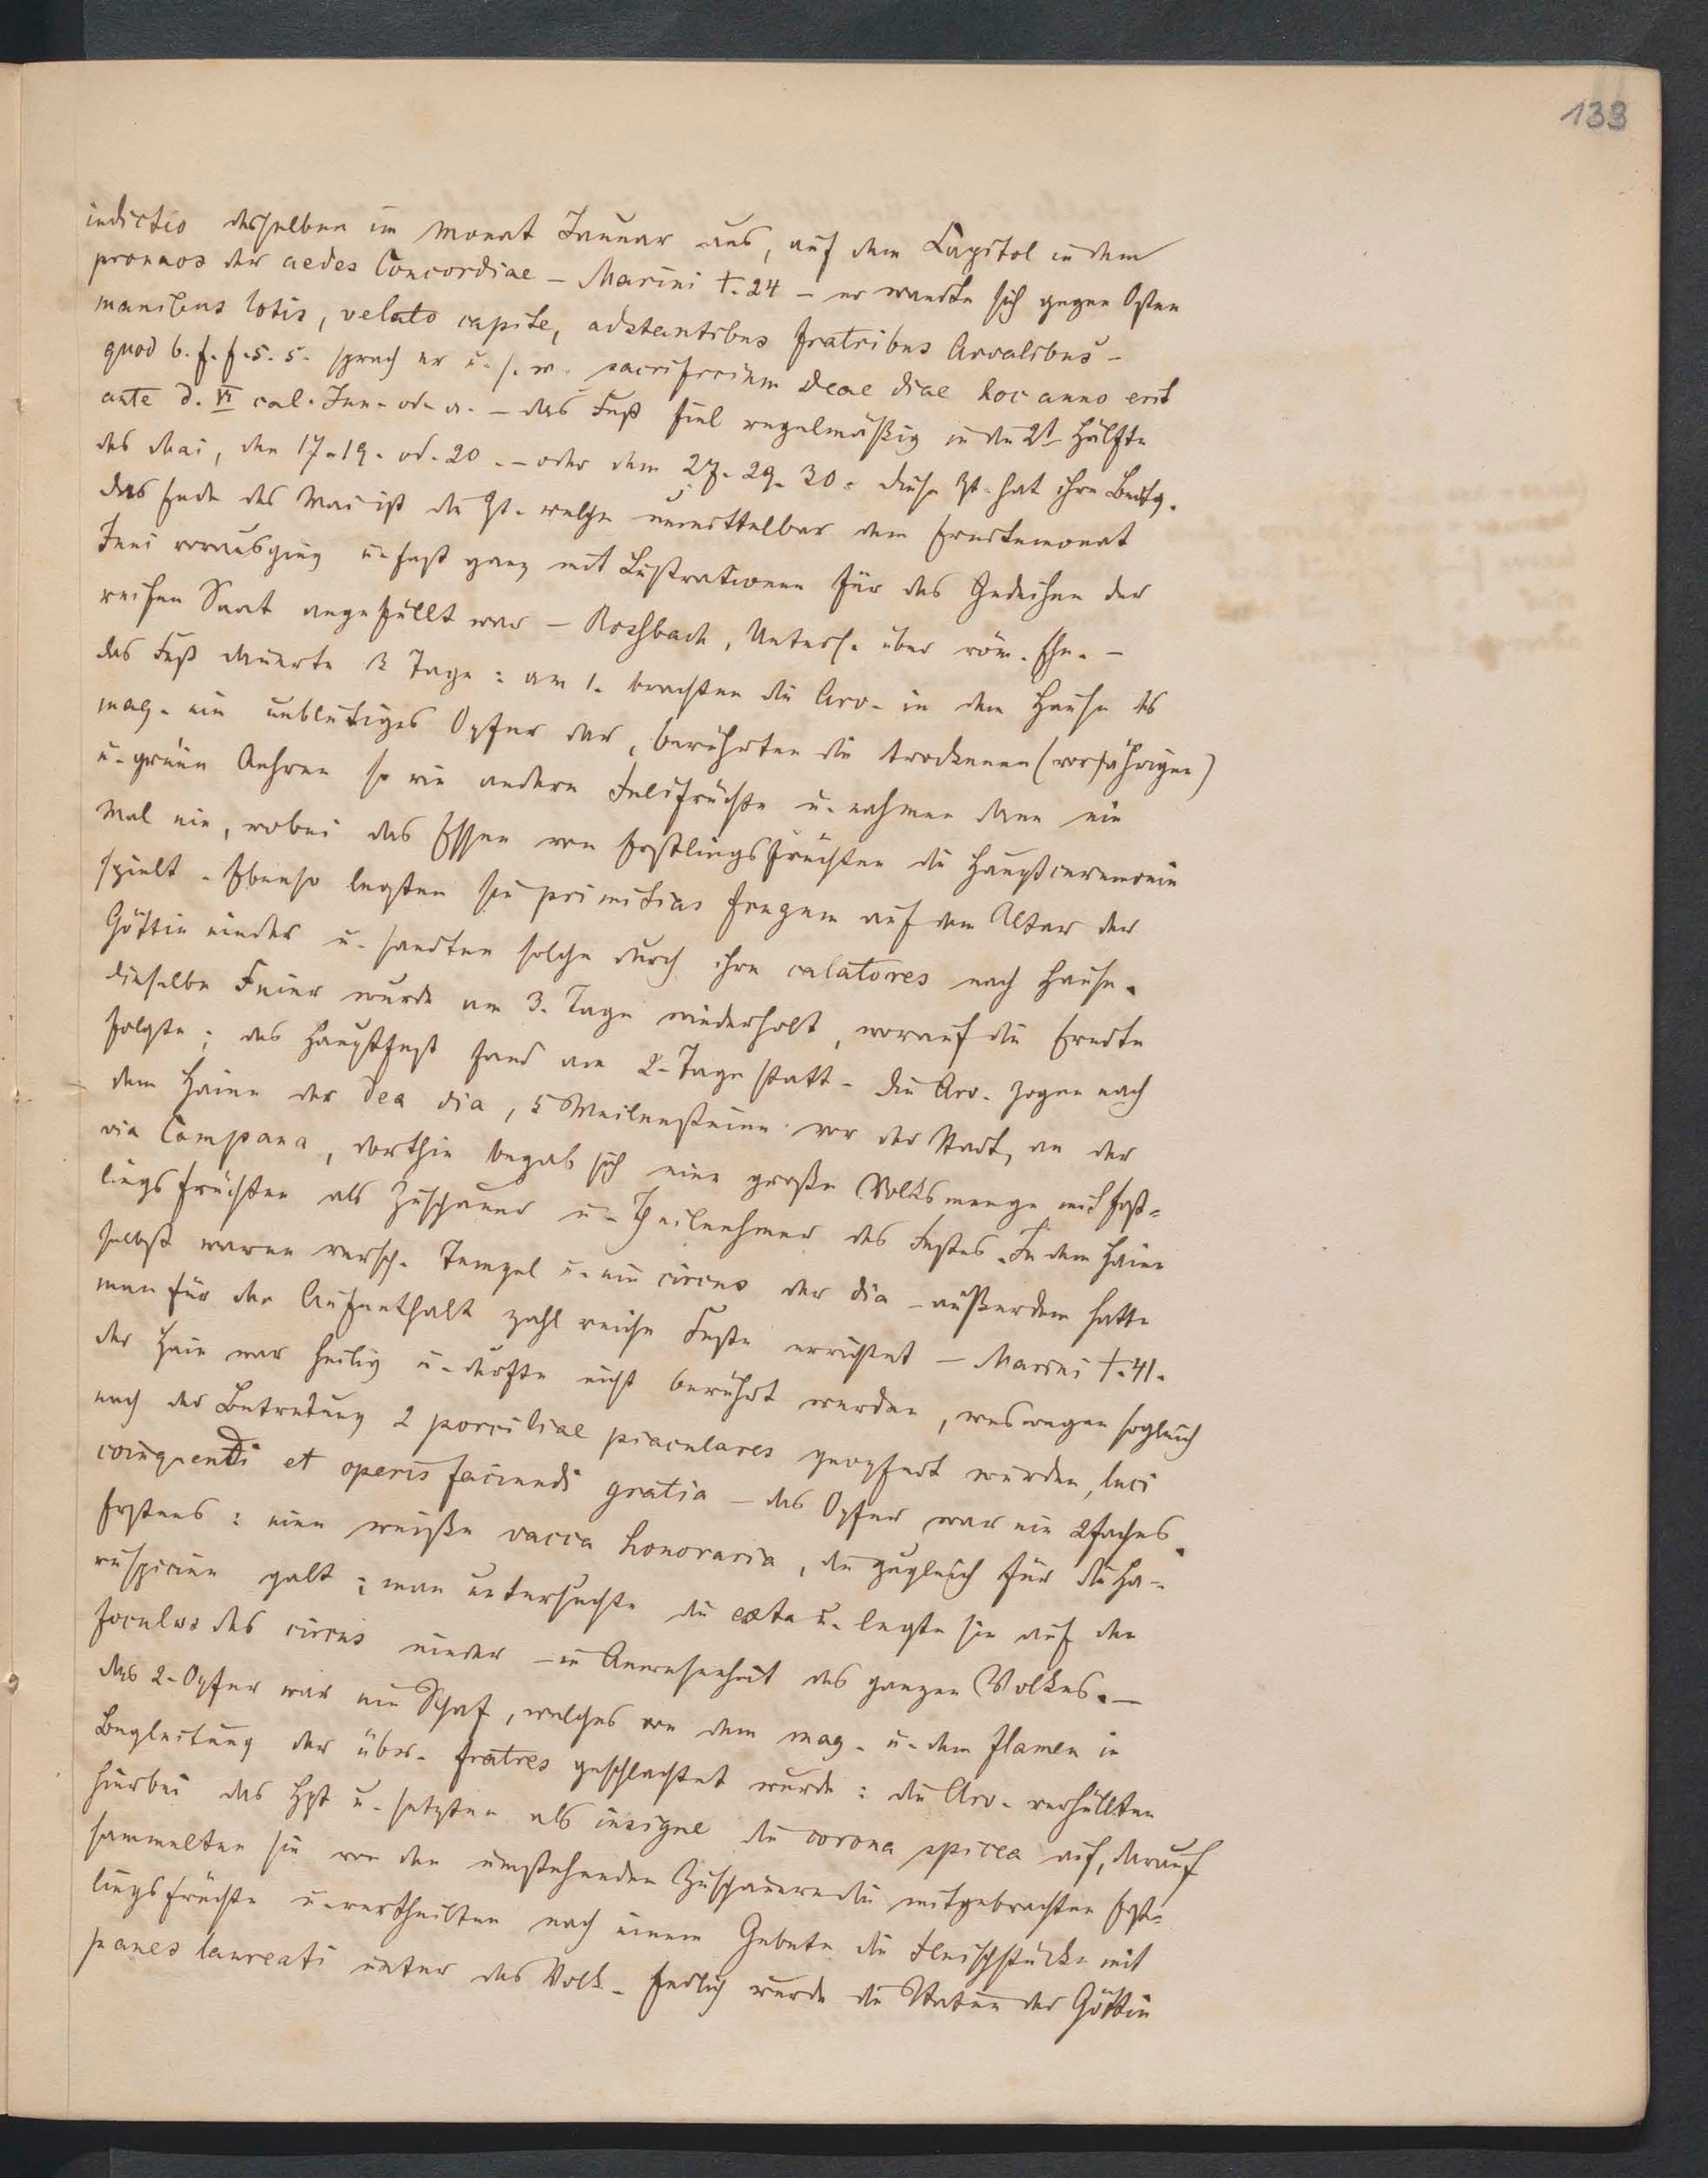 133
indictio desselben im Monat Januar aus, auf dem Capitol in dem
pronaos der aedes Concordiae – Marini t. 24 – er wandte sich gegen Osten
manibus lotis, velato capite, adstantibus fratribus Arvalibus –
quod b. f. f. s. s. sprach er u. s. w. sacrificium deae diae hoc anno erit
ante d. VI cal. Jun. od. a. – das Fest fiel regelmäßig in die 2t. Hälfte
des Mai, den 17. 19. od. 20. – oder dem 27. 29. 30. diese Zt. hat ihre Bedtg.
das Ende des Mai ist die Zt. welche unmittelbar dem Erndtemonat
Juni vorausging u. fast ganz mit Lustrationen für das Gedeihen der
reifen Saat angefüllt war – Rossbach, Unters. über röm. Ehe. –
das Fest dauerte 3 Tage: am 1. brachten die Arv. in dem Hause des
mag. ein unblutiges Opfer dar, berührten die trockenen (vorjährigen)
u. grünen Aehren so wie andere Feldfrüchte u. nahmen dann ein
Mal ein, wobei das Essen von Erstlingsfrüchten die Hauptceremonie
spielt. Ebenso legten sie primitias frugum auf den Altar der
Göttin nieder u. sandten solche durch ihre calatores nach Hause.
dieselbe Feier wurde am 3. Tage wiederholt, worauf die Erndte
folgte; das Hauptfest fand am 2. Tage statt. die Arv. zogen nach
dem Haine der Dea dia, 5 Meilensteine vor der Stadt, an der
via Campana, dorthin begab sich eine große Volksmenge mit Erst-
lingsfrüchten als Zuschauer u. Theilnehmer des Festes. In dem Haine
selbst waren versch. Tempel u. ein circus der dia – außerdem hatte
man für den Aufenthalt zahlreiche Feste errichtet – Marini t. 41.
der Hain war heilig u. durfte nicht berührt werden, weswegen sogleich
nach der Betretung 2 porciliae piaculares geopfert wurden, luci
coinquendi et operis faciundi gratia – das Opfer war ein 2faches.
Erstens: eine weiße vacca honoraria, die zugleich für die Ha-
ruspicien galt; man untersuchte die exta u. legte sie auf den
foculus des circus nieder – in Anwesenheit des ganzen Volkes. –
das 2. Opfer war ein Schaf, welches von dem mag. u. dem flamen in
Begleitung der übr. fratres geschlachtet wurde: die Arv. verhüllten
hierbei das Hpt u. setzten als insigne die corona spicea auf, darauf
sammelten sie von den umstehenden Zuschauern die mitgebrachten Erst-
lingsfrüchte u. vertheilten nach einem Gebete die Fleischstücke mit
panes laureati unter das Volk. Endlich wurde die Statue der Göttin